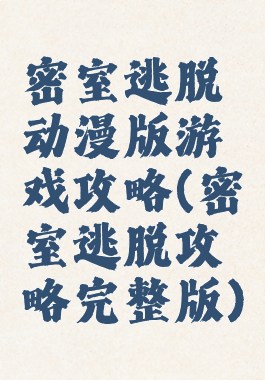 密室逃脱
动漫版游
戏攻略(密
室逃脱攻
略完整版)